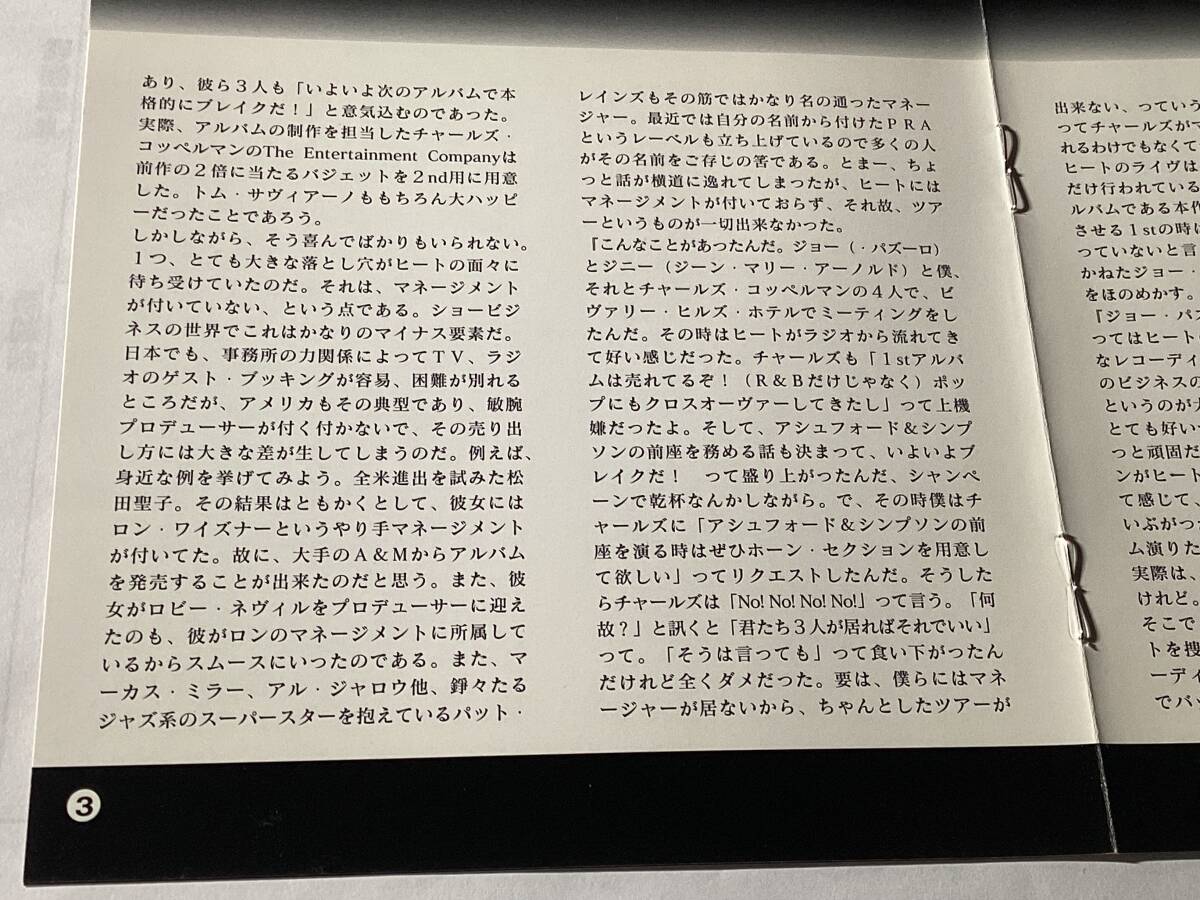 あり、彼ら３人も「いよいよ次のアルバムで本
格的にブレイクだ！」と意気込むのであった。
実際、アルバムの制作を担当したチャールズ・
コッペルマンのThe Entertainment Companyは
前作の２倍に当たるバジェットを２nd用に用意
した。トム・サヴィアーノももちろん大ハッピ
ーだったことであろう。
しかしながら、そう喜んでばかりもいられない。
１つ、とても大きな落とし穴がヒートの面々に
待ち受けていたのだ。それは、マネージメント
が付いていない、という点である。ショービジ
ネスの世界でこれはかなりのマイナス要素だ。
日本でも、事務所の力関係によってＴＶ、ラジ
オのゲスト・ブッキングが容易、困難が別れる
ところだが、アメリカもその典型であり、敏腕
プロデューサーが付く付かないで、その売り出
し方には大きな差が生してしまうのだ。例えば、
身近な例を挙げてみよう。全米進出を試みた松
田聖子。その結果はともかくとして、彼女には
ロン・ワイズナーというやり手マネージメント
が付いてた。故に、大手のＡ＆Ｍからアルバム
を発売することが出来たのだと思う。また、彼
女がロビー・ネヴィルをプロデューサーに迎え
たのも、彼がロンのマネージメントに所属して
いるからスムースにいったのである。また、マ
ーカス・ミラー、アル・ジャロウ他、錚々たる
ジャズ系のスーパースターを抱えているパット・
レインズもその筋ではかなり名の通ったマネー
ジャー。最近では自分の名前から付けたＰＲＡ
というレーベルも立ち上げているので多くの人
がその名前をご存じの筈である。とまー、ちょ
っと話が横道に逸れてしまったが、ヒートには
マネージメントが付いておらず、それ故、ツア
ーというものが一切出来なかった。
『こんなことがあったんだ。ジョー（・パズーロ）
とジニー（ジーン・マリー・アーノルド）と僕、
それとチャールズ・コッペルマンの４人で、ビ
ヴァリー・ヒルズ・ホテルでミーティングをし
たんだ。その時はヒートがラジオから流れてき
て好い感じだった。チャールズも「１stアルバ
ムは売れてるぞ！（Ｒ＆Ｂだけじゃなく）ポッ
プにもクロスオーヴァーしてきたし」って上機
嫌だったよ。そして、アシュフォード＆シンプ
ソンの前座を務める話も決まって、いよいよブ
レイクだ！　って盛り上がったんだ、シャンペ
ーンで乾杯なんかしながら。で、その時僕はチ
ャールズに「アシュフォード＆シンプソンの前
座を演る時はぜひホーン・セクションを用意し
て欲しい」ってリクエストしたんだ。そうした
らチャールズは「No! No! No! No!」って言う。「何
故？」と訊くと「君たち３人が居ればそれでいい」
って。「そうは言っても」って食い下がったん
だけれど全くダメだった。要は、僕らにはマネ
ージャーが居ないから、ちゃんとしたツアーが
出来ない、っていう
ってチャールズがマ
れるわけでもなくて
ヒートのライヴは
だけ行われている
ルバムである本作
させる１stの時に
っていないと言
かねたジョー・
をほのめかす。
『ジョー・パズ
ってはヒート
なレコーディ
のビジネスの
というのが
とても好い
っと頑固だ
ンがヒート
て感じて、
いぶがっ
ム演りた
実際は、
けれど。
そこで
トを捜
ーディ
でバッ
3